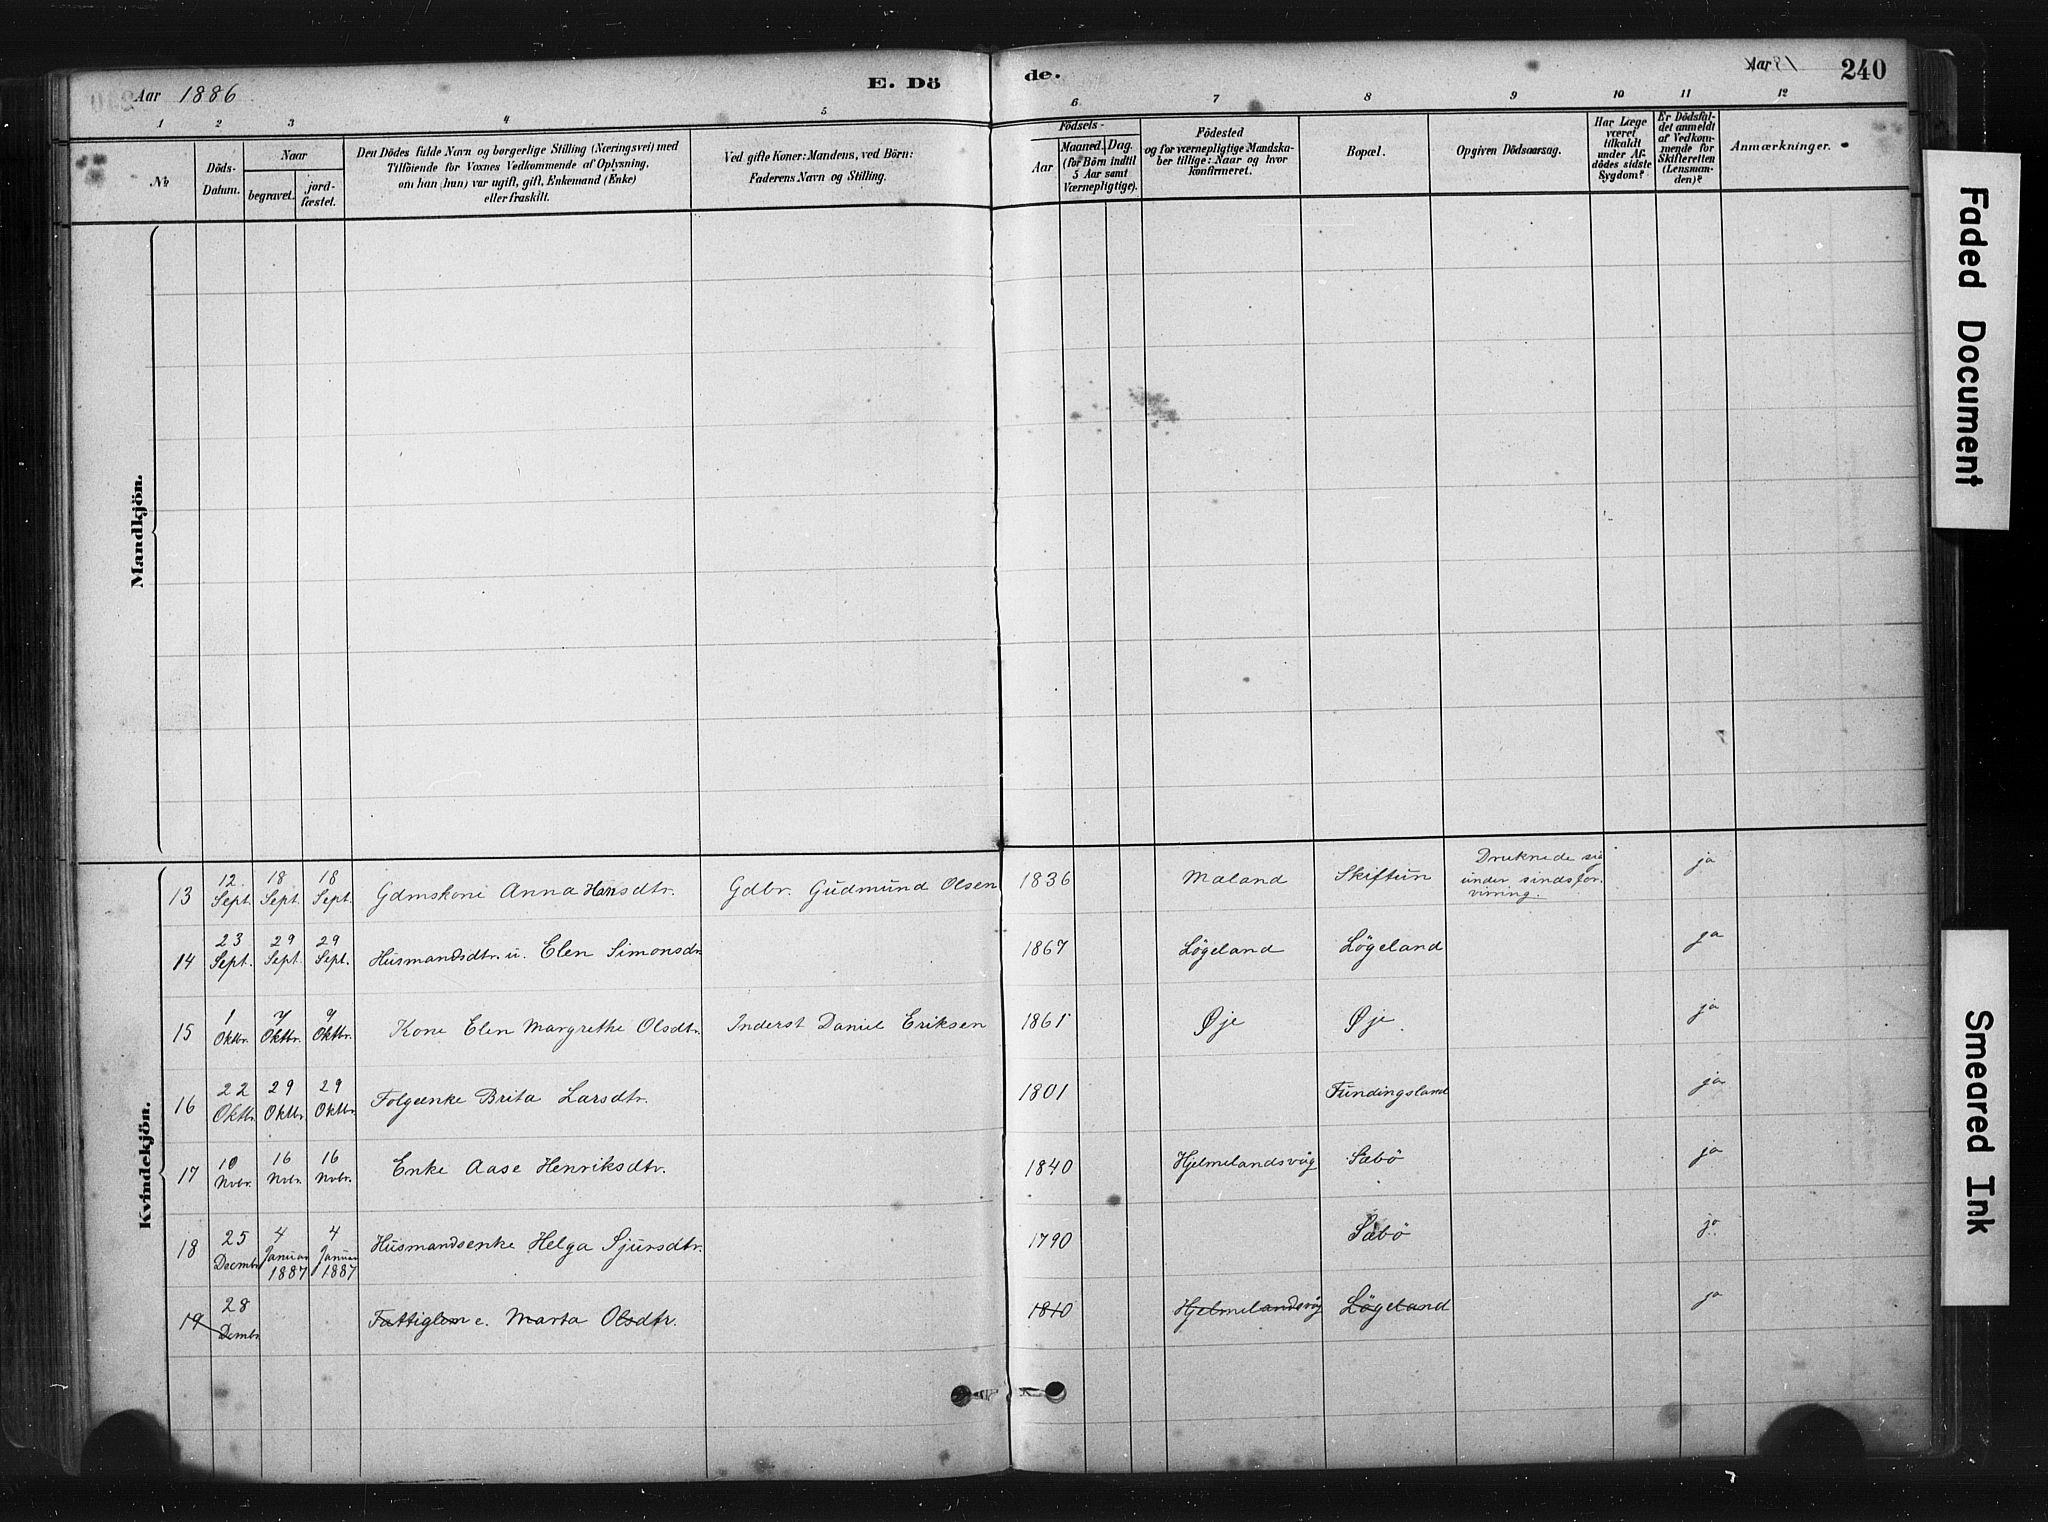 Aar 1886
E. Döde.
Aar 18
240
1 2 3 4 5 6 7 8 9 10 11 12
№
Döds-Datum.
Naar
begravet.
jord-fæstet.
Den Dödes fulde Navn og borgerlige Stilling (Næringsvei) med
Tilföiende for Voxnes Vedkommende af Oplysning,
om han (hun) var ugift, gift, Enkemand (Enke)
eller fraskilt.
Ved gifte Koner: Mandens, ved Börn:
Faderens Navn og Stilling.
Födsels-
Aar
Maaned. Dag.
(for Börn indtil
5 Aar samt
Værnepligtige).
Födested
og for værnepligtige Mandska-
ber tillige: Naar og hvor
konfirmeret.
Bopæl.
Opgiven Dödsaarsag.
Har Læge
været
tilkaldt
under Af-
dödes sidste
Sygdom?
Er Dödsfal-
det anmeldt
af Vedkom-
mende for
Skifteretten
(Lensman-
den)?
Anmærkninger.
Mandkjön.
Kvindekjön.
13 12 Sept. 18 Sept. 18 Sept. Gdmskone Anna Hansdtr. Gdbr. Gudmund Olsen 1836 Maland Skiftun Druknede sig under sindsfor-virring. ja
14 23 Sept. 29 Sept. 29 Sept. Husmandsdtr. u. Elen Simonsdr. 1867 Løgeland Løgeland ja
15 1 Oktbr. 7 Oktbr. 9 Oktbr. Kone Elen Margrethe Olsdtr. Inderst Daniel Eriksen 1861 Øje Øje. ja
16 22 Oktbr. 29 Oktbr. 29 Oktbr. Folgeenke Brita Larsdtr. 1801 Fundingsland ja
17 10 Nvbr. 16 Nvbr. 16 Nvbr. Enke Aase Henriksdtr. 1840 Hjelmelandsvåg Sæbö ja
18 25 Decmbr. 4 Januar 1887 4 Januar 1887 Husmandsenke Helga Sjursdtr. 1790 Sæbö ja
19 28 Dcmbr. Fattiglem e. Marta Olsdtr. 1810 Hjelmelandsvåg Løgeland ja
Faded Document
Smeared Ink